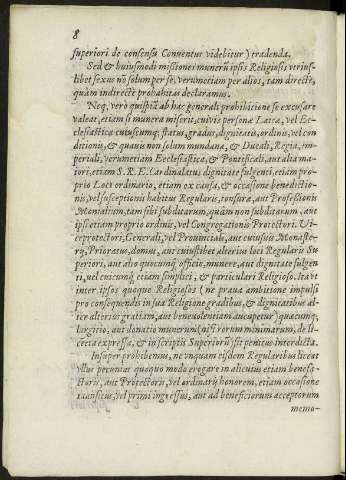 8
superiori de consensu Conuentus videbitur) tradenda.
Sed & huiusmodi missiones munerũ ipsis Religiosis vtrius-
libet sexus nõ solum per se, verumetiam per alios, tam directè,
quàm indirectè prohibitas declaramus.
Neq. verò quispiã ab hac generali prohibitione se excusare
valeat, etiam si munera miserit, cuivis personæ Laicæ, vel Ec-
clesiasticæ cuiuscumq; status, gradus, dignitatis, ordinis, vel con
ditionis, & quauis non solum mundana, & Ducali, Regia, im-
periali, verumetiam Ecclesiastica, & Pontificali, aut alia ma-
iori, etiam S. R. E. Cardinalatus dignitate fulgenti, etiam pro-
prio Loci ordinario, etiam ex causa, & occasione benedictio-
nis, vel susceptionis habitus Regularis, tonsuræ, aut Professionis
Monialium, tam sibi subditarum, quàm non subditarum, aut
ipsi etiam proprio ordinis, vel Congregationis Protectori, Vi-
ceprotectori, Generali, vel Prouinciali, aut cuiusuis Monaste-
rij, Prioratus, domus, aut cuiuslibet alterius loci Regularis Su
periori, aut alio quocumq; officio, munere, aut dignitate fulgen
ti, vel cuicumq; etiam simplici, & particulari Religioso. Ita vt
inter ipsos quoque Religiosos (ne praua ambitione impulsi
pro consequendis in sua Religione gradibus, & dignitatibus al-
ter alterius gratiam, aut beneuolentiam aucupetur) quæcumq;
largitio, aut donatio munerum (nisi rerum minimarum, de li-
cẽtia expressa, & in scriptis Superiorũ) sit penitus interdicta.
Insuper prohibemus, ne vnquam eisdem Regularibus liceat
vllas pecunias quoquo modo erogare in alicuius etiam benefa-
ctoris, aut Protectoris, vel ordinarij honorem, etiam occasione
transitus, vel primi ingressus, aut ad beneficiorum acceptorum
memo-